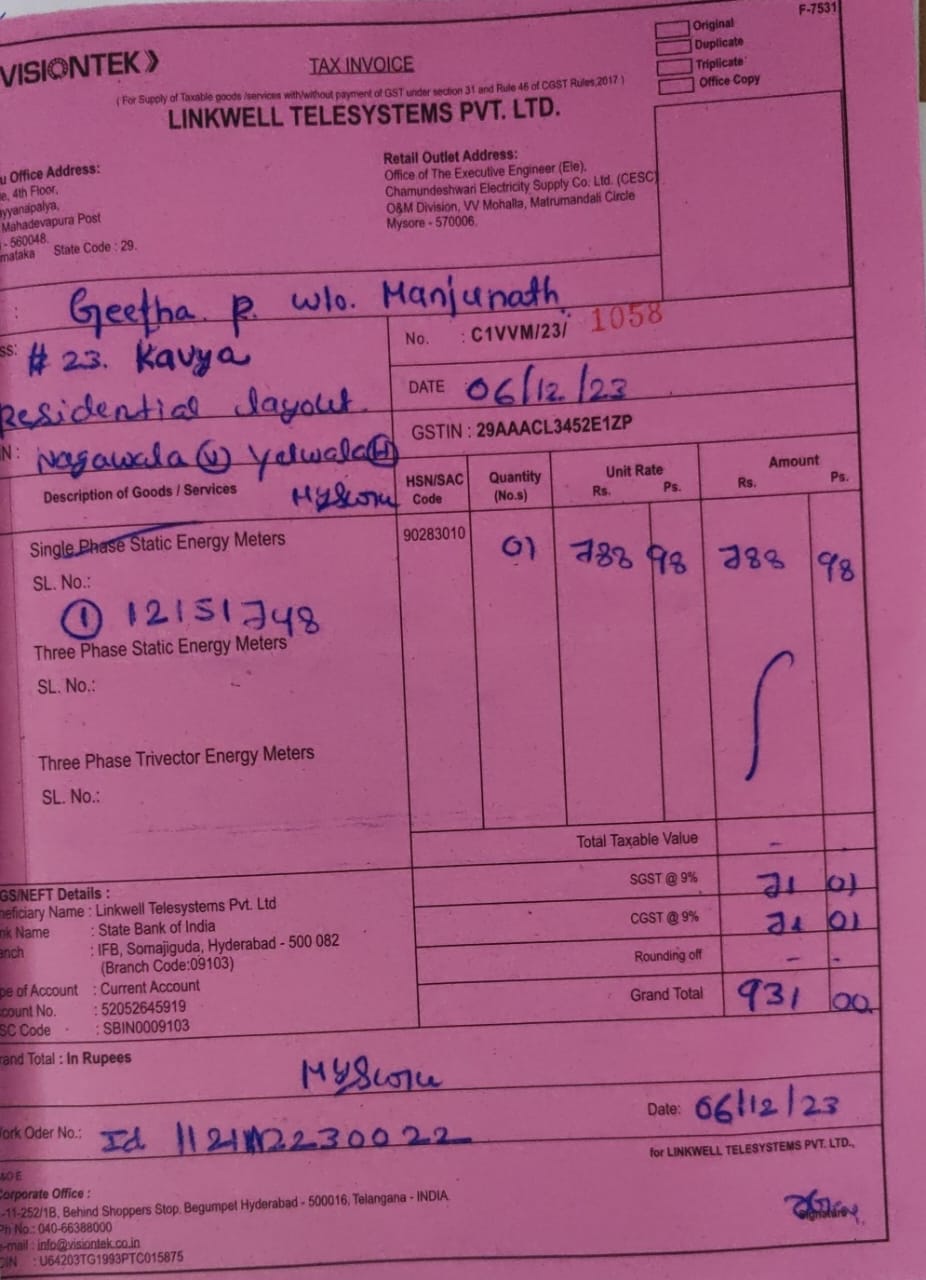 VISIONTEK
TAX INVOICE
F-7531
Original
Duplicate
Triplicate
Office Copy
( For Supply of Taxable goods /services with/without payment of GST under section 31 and Rule 46 of CGST Rules,2017 )
LINKWELL TELESYSTEMS PVT. LTD.
u Office Address:
e, 4th Floor,
ayyanapalya,
Mahadevapura Post
- 560048.
rnataka State Code : 29.
Retail Outlet Address:
Office of The Executive Engineer (Ele),
Chamundeshwari Electricity Supply Co. Ltd. (CESC)
O&M Division, VV Mohalla, Matrumandali Circle
Mysore - 570006.
: Geetha. R. w/o. Manjunath
ss: # 23. Kavya
Residential layout.
N : Nagawala (V) Yelwala (H)
Mysore
No. : C1VVM/23/ 1058
DATE 06/12/23
GSTIN : 29AAACL3452E1ZP
Description of Goods / Services
HSN/SAC Code
Quantity (No.s)
Unit Rate Rs. Ps.
Amount Rs. Ps.
Single Phase Static Energy Meters 90283010 01 788 98 788 98
SL. No.:
① 12151748
Three Phase Static Energy Meters
SL. No.:
Three Phase Trivector Energy Meters
SL. No.:
Total Taxable Value - -
SGST @ 9% 71 01
CGST @ 9% 71 01
Rounding off - -
Grand Total 931 00
GS/NEFT Details :
neficiary Name : Linkwell Telesystems Pvt. Ltd
nk Name : State Bank of India
anch : IFB, Somajiguda, Hyderabad - 500 082
(Branch Code:09103)
pe of Account : Current Account
count No. : 52052645919
SC Code : SBIN0009103
rand Total : In Rupees
Mysore
Work Oder No.: Id
Date: 06/12/23
for LINKWELL TELESYSTEMS PVT. LTD.,
&O E
Corporate Office :
-11-252/1B, Behind Shoppers Stop, Begumpet Hyderabad - 500016, Telangana - INDIA
Ph No.: 040-66388000
e-mail : info@visiontek.co.in
CIN : U64203TG1993PTC015875
Signature